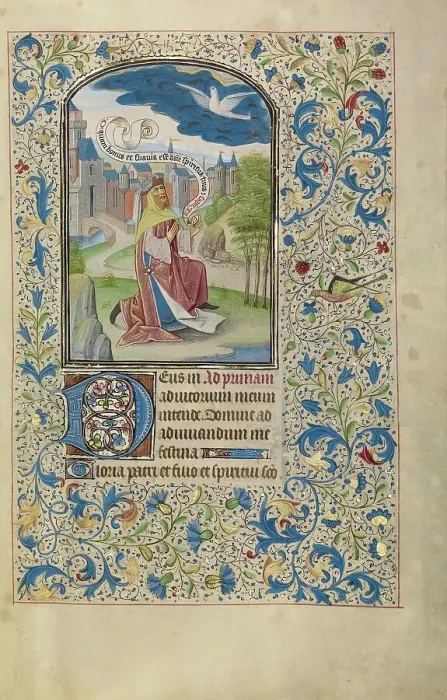 O quam bonus et suavis est dñe spiritus tuus
Eus in Ad primam
adiutorium meum
intende. Domine ad
adiuuandum me
festina
loria patri et filio et spiritui sco